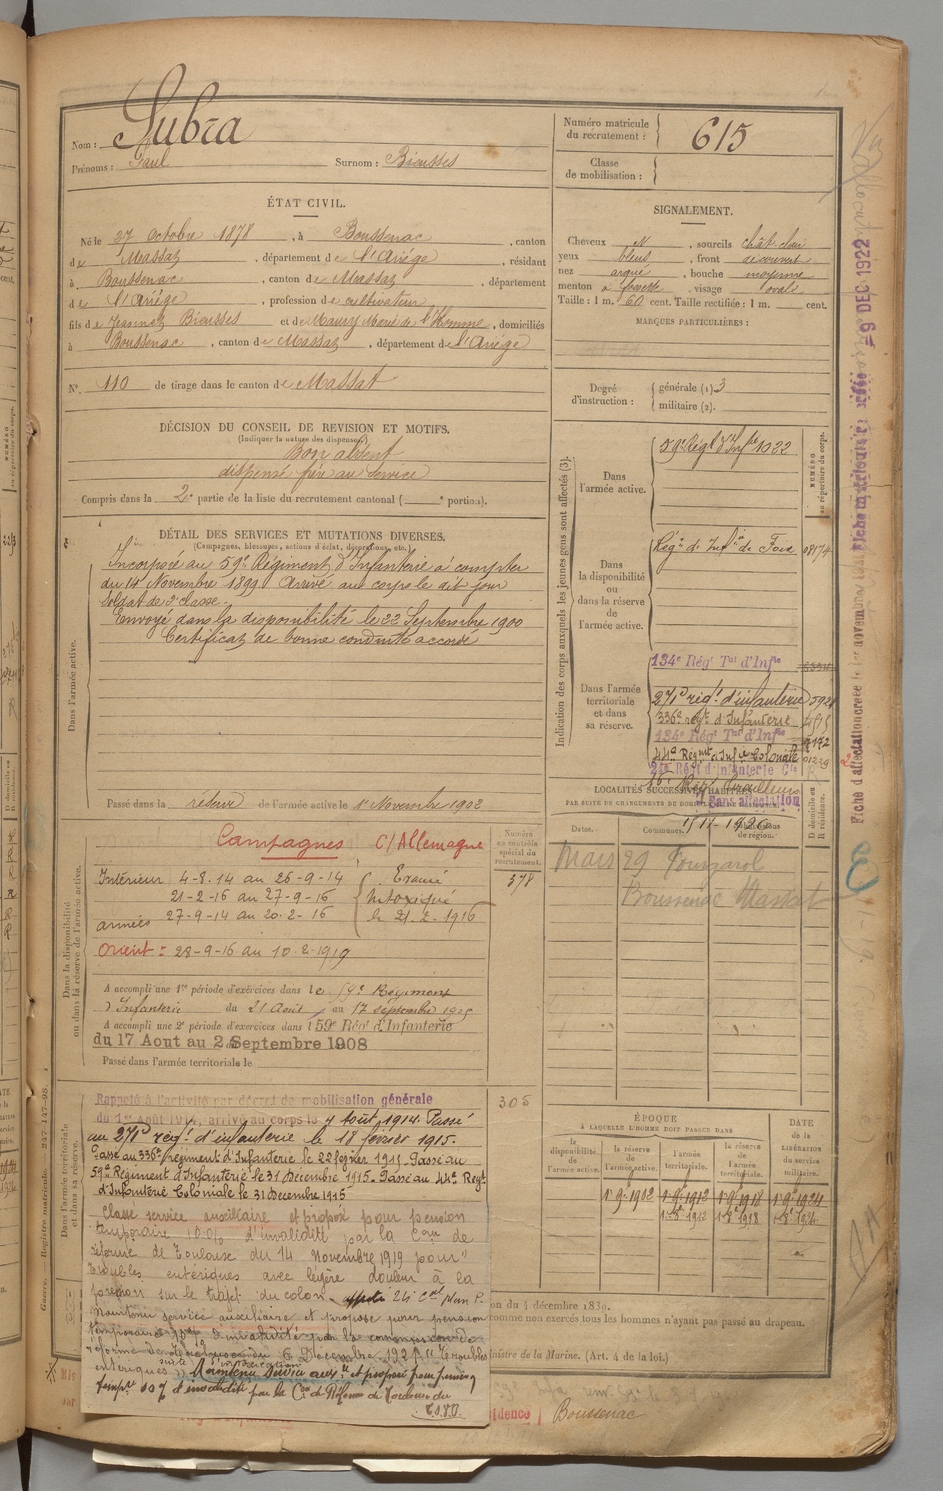 Nom : Subra
Prénoms : Paul Surnom : Bieusses
Numéro matricule du recrutement : 615
Classe de mobilisation :
ÉTAT CIVIL.
Né le 27 Octobre 1878, à Boussenac, canton
de Massat, département de l'Ariège, résidant
à Boussenac, canton de Massat, département
de l'Ariège, profession de cultivateur
fils de Jeannet Bieusses et de Maury Marie de l'Homme, domiciliés
à Boussenac, canton de Massat, département de l'Ariège
N° 110 de tirage dans le canton de Massat
SIGNALEMENT.
Cheveux N, sourcils chât. clair
yeux bleus, front découvert
nez arqué, bouche moyenne
menton à fossette, visage ovale
Taille : 1 m. 60 cent. Taille rectifiée : 1 m. cent.
MARQUES PARTICULIÈRES :
Degré d'instruction : générale (1) 3
militaire (2).
DÉCISION DU CONSEIL DE REVISION ET MOTIFS.
(Indiquer la nature des dispenses)
Bon absent
dispensé frère au service
Compris dans la 2e partie de la liste du recrutement cantonal ( e portion).
DÉTAIL DES SERVICES ET MUTATIONS DIVERSES.
(Campagnes, blessures, actions d'éclat, décorations, etc.)
Dans l'armée active.
Incorporé au 59e Régiment d'Infanterie à compter
du 14 Novembre 1899. Arrivé au corps le dit jour
Soldat de 2e classe.
Envoyé dans la disponibilité le 22 Septembre 1900
Certificat de bonne conduite accordé
Passé dans la réserve de l'armée active le 1er Novembre 1902
Indication des corps auxquels les jeunes gens sont affectés (3).
NUMÉRO au répertoire du corps.
Dans l'armée active.
59e Régt d'Infie 1022
Dans la disponibilité ou dans la réserve de l'armée active.
Régt d'Infie de Foix
Dans l'armée territoriale et dans sa réserve.
134e Régt Tal d'Infie
271e régt d'infanterie
336e régt d'Infanterie
134e Régt Tal d'Infie
44e Régmt d'Infie Coloniale
24e Régt d'Infanterie Cle
16e Régt Tirailleurs
Sans affectation
1-11-1926
LOCALITÉS SUCCESSIVES HABITÉES
PAR SUITE DE CHANGEMENTS DE DOMICILE OU DE RÉSIDENCE.
Dates. Communes. Subdivisions de région. D domicile ou R résidence.
Mars 29
Boussenac Massat
Dans la disponibilité ou dans la réserve de l'armée active.
Numéro au contrôle spécial du recrutement.
378
Campagnes C/Allemagne
Intérieur 4-8-14 au 26-9-14 Evacué
21-2-16 au 27-9-16 Intoxiqué
armées 27-9-14 au 20-2-16 le 21-2-1916
Orient : 28-9-16 au 10-2-1919
A accompli une 1re période d'exercices dans le 59e Régiment
d'Infanterie du 21 Août au 17 septembre 1905
A accompli une 2e période d'exercices dans l 59e Rég' d'Infanterie
du 17 Aout au 2 Septembre 1908
Passé dans l'armée territoriale le
Dans l'armée territoriale et dans sa réserve.
305
Rappelé à l'activité par décret de mobilisation générale
du 1er Août 1914, arrivé au corps le 4 Août 1914. Passé
au 271e régt d'infanterie le 18 février 1915.
Passé au 336e régiment d'Infanterie le 22 février 1915. Passé au
59e Régiment d'Infanterie le 31 Décembre 1915. Passé au 44e Régt
d'Infanterie Coloniale le 31 Décembre 1915
Classé service auxiliaire et proposé pour pension
temporaire 10% d'invalidité par la Con de
réforme de Toulouse du 14 Novembre 1919 pour "
Troubles entériques avec légère douleur à la
pression sur le trajet du colon.
Maintenu service auxiliaire et proposé pour pension
temporaire d'invalidité par la commission de
réforme de 6 Decembre 192 "Troubles
entériques" Maintenu service auxre et proposé pour pension
tempre 10% d'invalidité par la Con de Réforme de Toulouse du
ÉPOQUE
À LAQUELLE L'HOMME DOIT PASSER DANS
la disponibilité de l'armée active.
la réserve de l'armée active.
l'armée territoriale.
la réserve de l'armée territoriale.
DATE de la LIBÉRATION du service militaire.
1er 9bre 1902 1er 9bre 1912 1er 9bre 1918 1er 9bre 1924
on du 4 décembre 1830.
comme non exercés tous les hommes n'ayant pas passé au drapeau.
inistre de la Marine. (Art. 4 de la loi.)
idence Boussenac
Guerre. — Registre matricule.
-9 DEC 1922